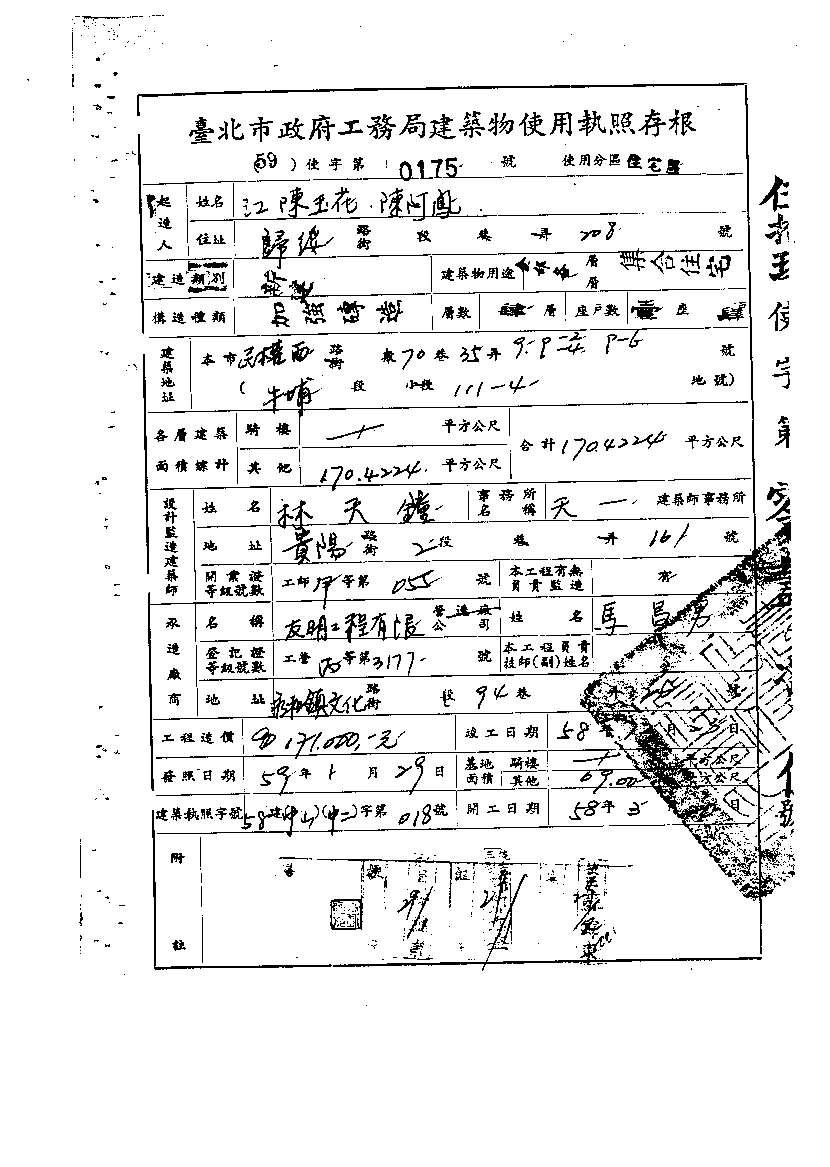 臺北市政府工務局建築物使用執照存根
(59)使字第 0175 號 使用分區 住宅區
起造人 姓名 江陳玉花、陳阿鳳
住址 歸綏 路街 段 巷 弄 208 號
建造類別 新建 建築物用途 層層 集合住宅
構造種類 加強磚造 層數 肆 層 座戶數 壹 座 肆
建築地址 本市民權西路街 段 70 巷 35 弄 號
(牛埔 段 小段 111-4 地號)
各層建築面積總計 騎樓 平方公尺 合計 170.4224 平方公尺
其他 170.4224 平方公尺
設計監造建築師 姓名 林天鐘 事務所名稱 天一 建築師事務所
地址 貴陽 路街 2 段 巷 弄 161 號
開業證等級號數 工師甲等第 055 號 本工程有無負責監造 有
承造廠商 名稱 友明工程有限 營造廠公司 姓名 馬昌男
登記證等級號數 工營丙等第 3177 號 本工程負責技師(副)姓名
地址 永和鎮文化 路街 段 94 巷 弄 號
工程造價 171,000,-元 竣工日期 58 年 月 日
發照日期 59 年 1 月 29 日 基地面積 騎樓 平方公尺
其他 69.00 平方公尺
建築執照字號 58 建(中山)(中二)字第 018 號 開工日期 58 年 3 日
附註
使字第
號